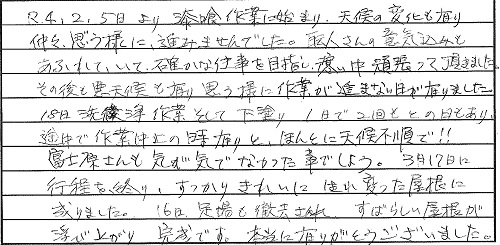 R.4.2.5日より漆喰作業に始まり、天候の変化も有り
仲々、思う様に、進みませんでした。職人さんの意気込みも
あふれていて、確かな仕事を目指し、寒い中頑張って頂きました。
その後も悪天候も有り思う様に作業が進まない日が有りました。
18日洗浄作業そして下塗り1日で2回もとの日もあり、
途中で作業中止の日も有りと、ほんとに天候不順で!!
冨士原さんも気が気でなかった事でしょう。3月17日に
行程を終り、すっかりきれいに生れ変った屋根に
成りました。16日足場も撤去され すばらしい屋根が
浮び上がり 完成です。本当に有りがとうございました。